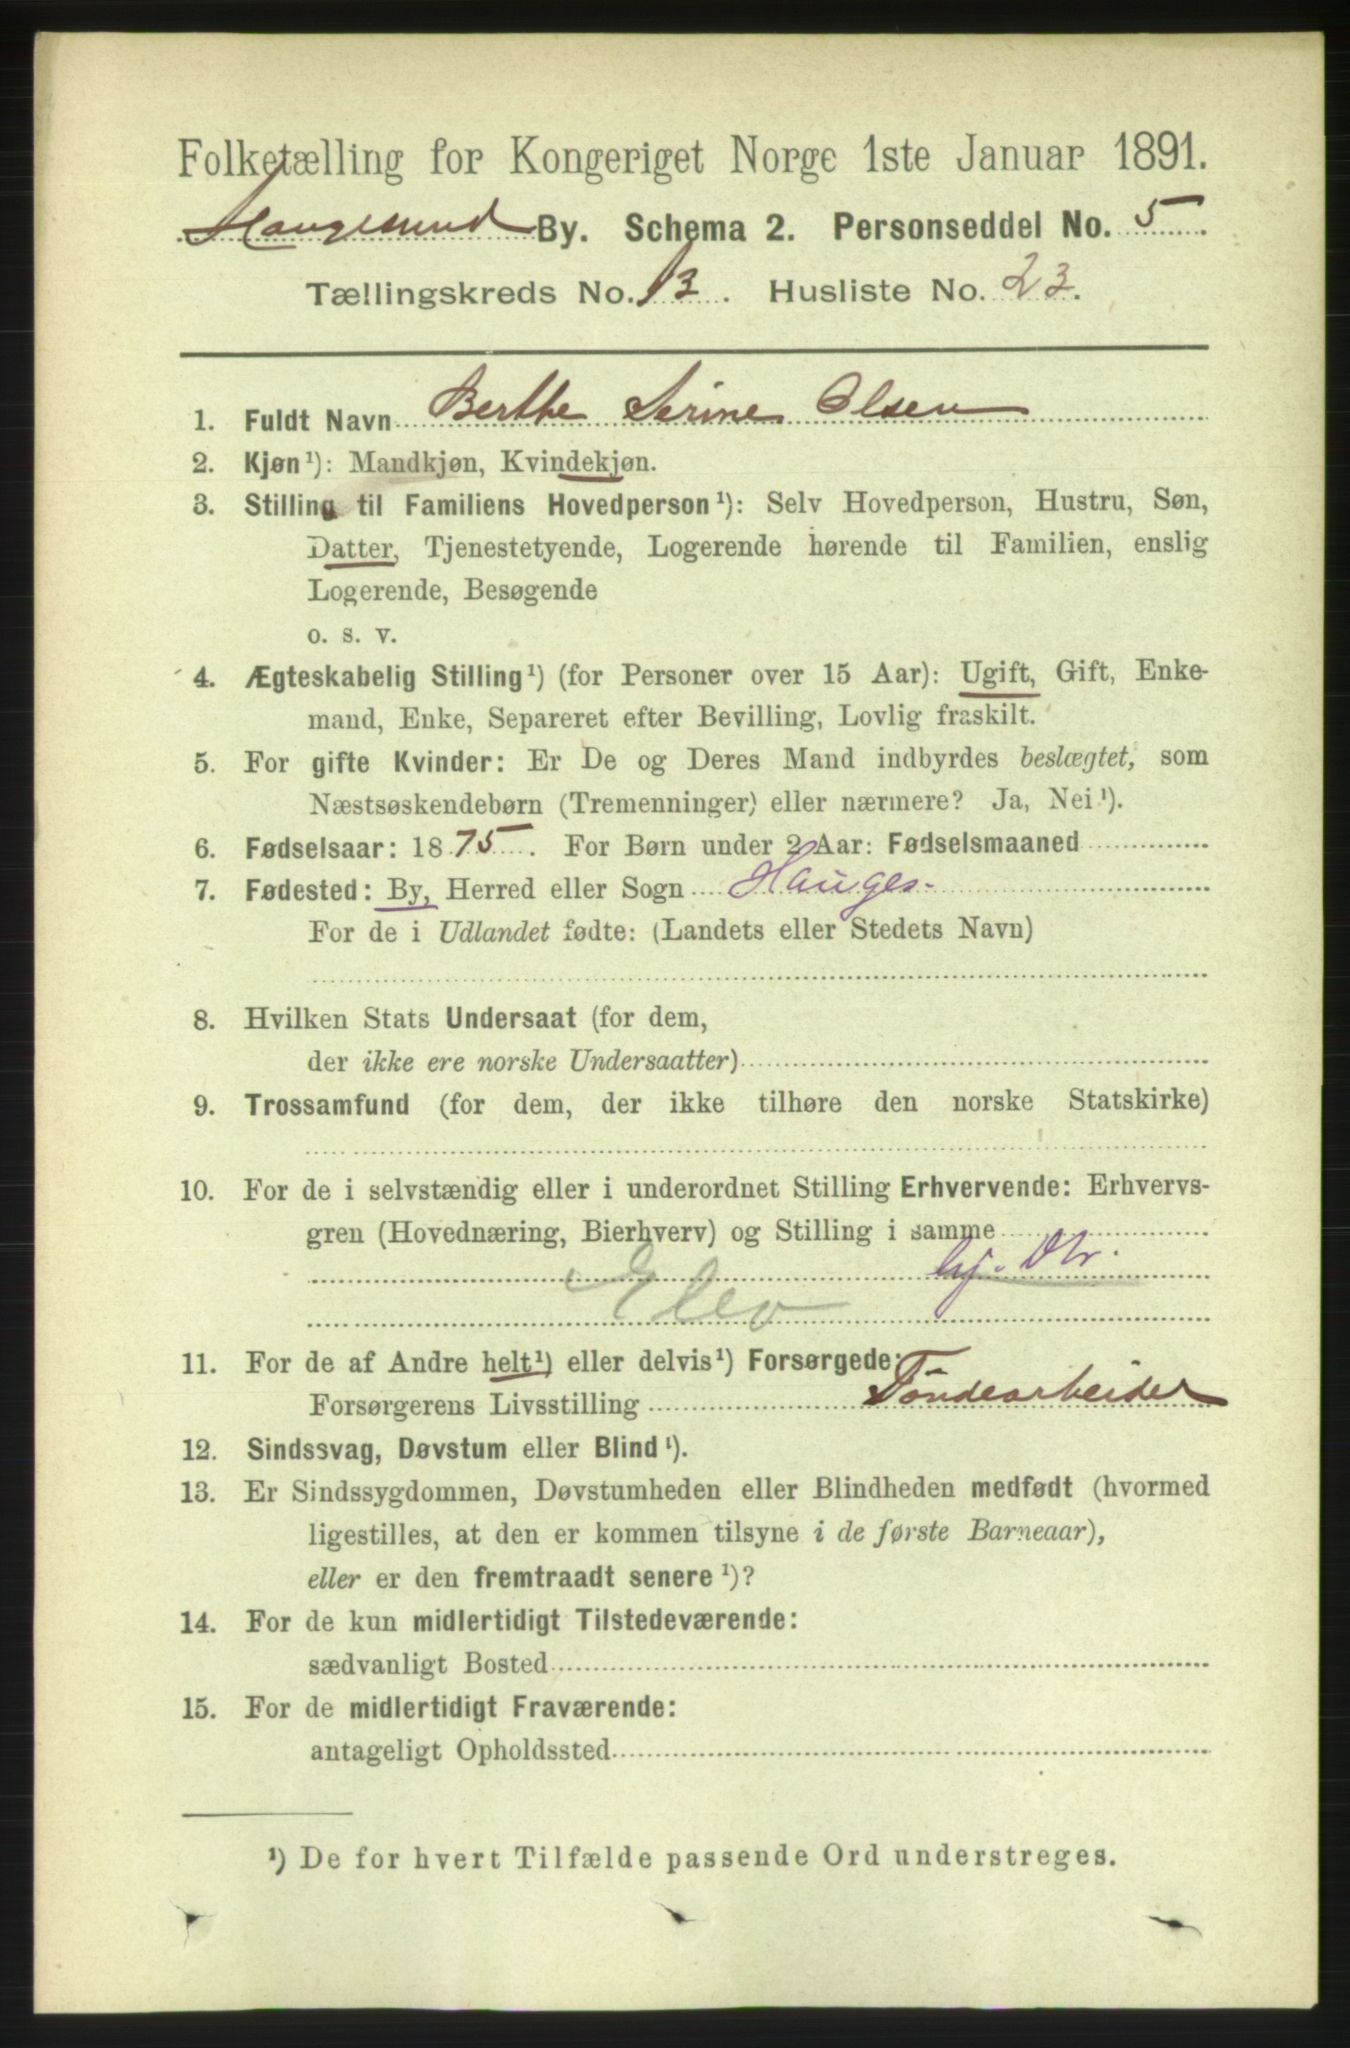 Folketælling for Kongeriget Norge 1ste Januar 1891.
Haugesund By. Schema 2. Personseddel No. 5
Tællingskreds No. 13. Husliste No. 23.
1. Fuldt Navn Berthe Serine Olsen
2. Kjøn¹): Mandkjøn, Kvindekjøn.
3. Stilling til Familiens Hovedperson¹): Selv Hovedperson, Hustru, Søn,
Datter, Tjenestetyende, Logerende hørende til Familien, enslig
Logerende, Besøgende
o. s. v.
4. Ægteskabelig Stilling¹) (for Personer over 15 Aar): Ugift, Gift, Enke-
mand, Enke, Separeret efter Bevilling, Lovlig fraskilt.
5. For gifte Kvinder: Er De og Deres Mand indbyrdes beslægtet, som
Næstsøskendebørn (Tremenninger) eller nærmere? Ja, Nei¹).
6. Fødselsaar: 1875. For Børn under 2 Aar: Fødselsmaaned
7. Fødested: By, Herred eller Sogn Hauges.
For de i Udlandet fødte: (Landets eller Stedets Navn)
8. Hvilken Stats Undersaat (for dem,
der ikke ere norske Undersaatter)
9. Trossamfund (for dem, der ikke tilhøre den norske Statskirke)
10. For de i selvstændig eller i underordnet Stilling Erhvervende: Erhvervs-
gren (Hovednæring, Bierhverv) og Stilling i samme
hj. Dtr.
Elev
11. For de af Andre helt¹) eller delvis¹) Forsørgede:
Forsørgerens Livsstilling Töndearbeider
12. Sindssvag, Døvstum eller Blind¹).
13. Er Sindssygdommen, Døvstumheden eller Blindheden medfødt (hvormed
ligestilles, at den er kommen tilsyne i de første Barneaar),
eller er den fremtraadt senere¹)?
14. For de kun midlertidigt Tilstedeværende:
sædvanligt Bosted
15. For de midlertidigt Fraværende:
antageligt Opholdssted
¹) De for hvert Tilfælde passende Ord understreges.